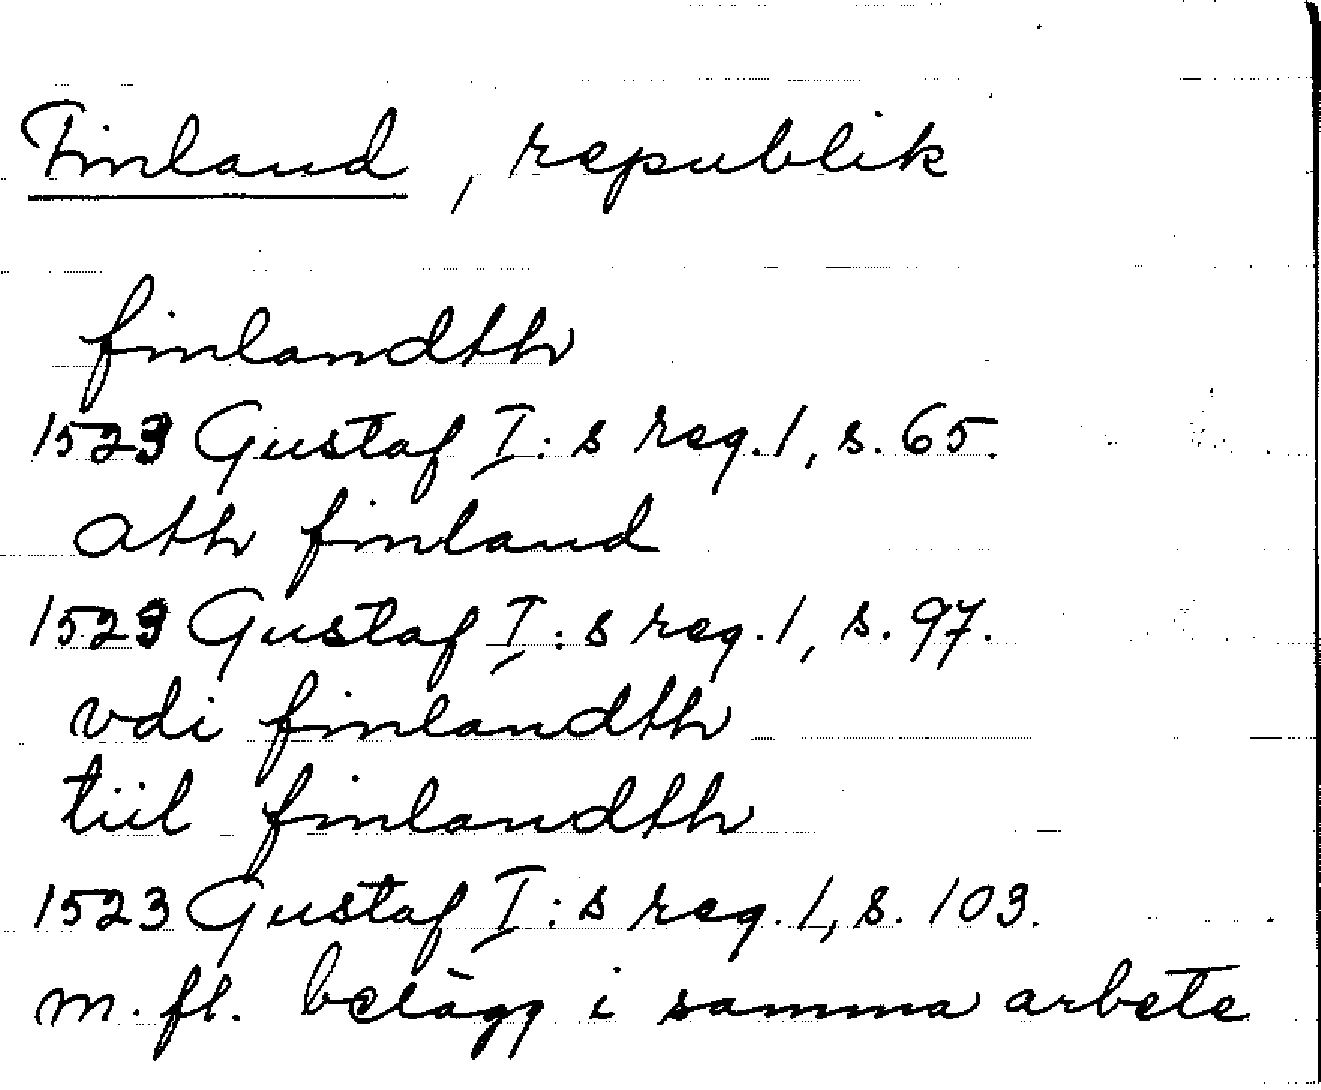 Finland, republik
finlandth
1523 Gustaf I:s reg. 1, s. 65.
ath finland
1523 Gustaf I:s reg. 1, s. 97.
vdi finlandth
tiil finlandth
1523 Gustaf I:s reg. 1, s. 103.
m. fl. belägg i samma arbete